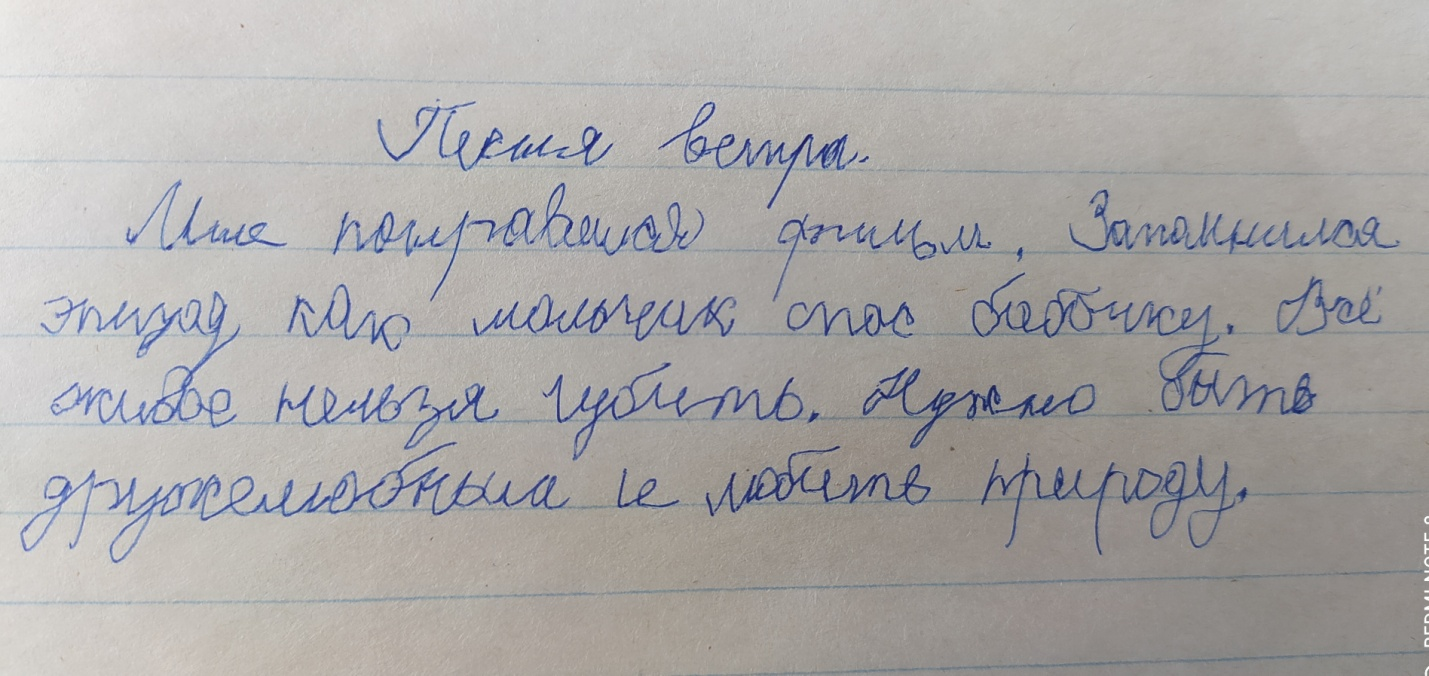 Песня ветра.
Мне понравился фильм. Запомнился
эпизод как мальчик спас бабочку. Всё
живое нельзя губить. Нужно быть
дружелюбным и любить природу.
REDMI NOTE 8